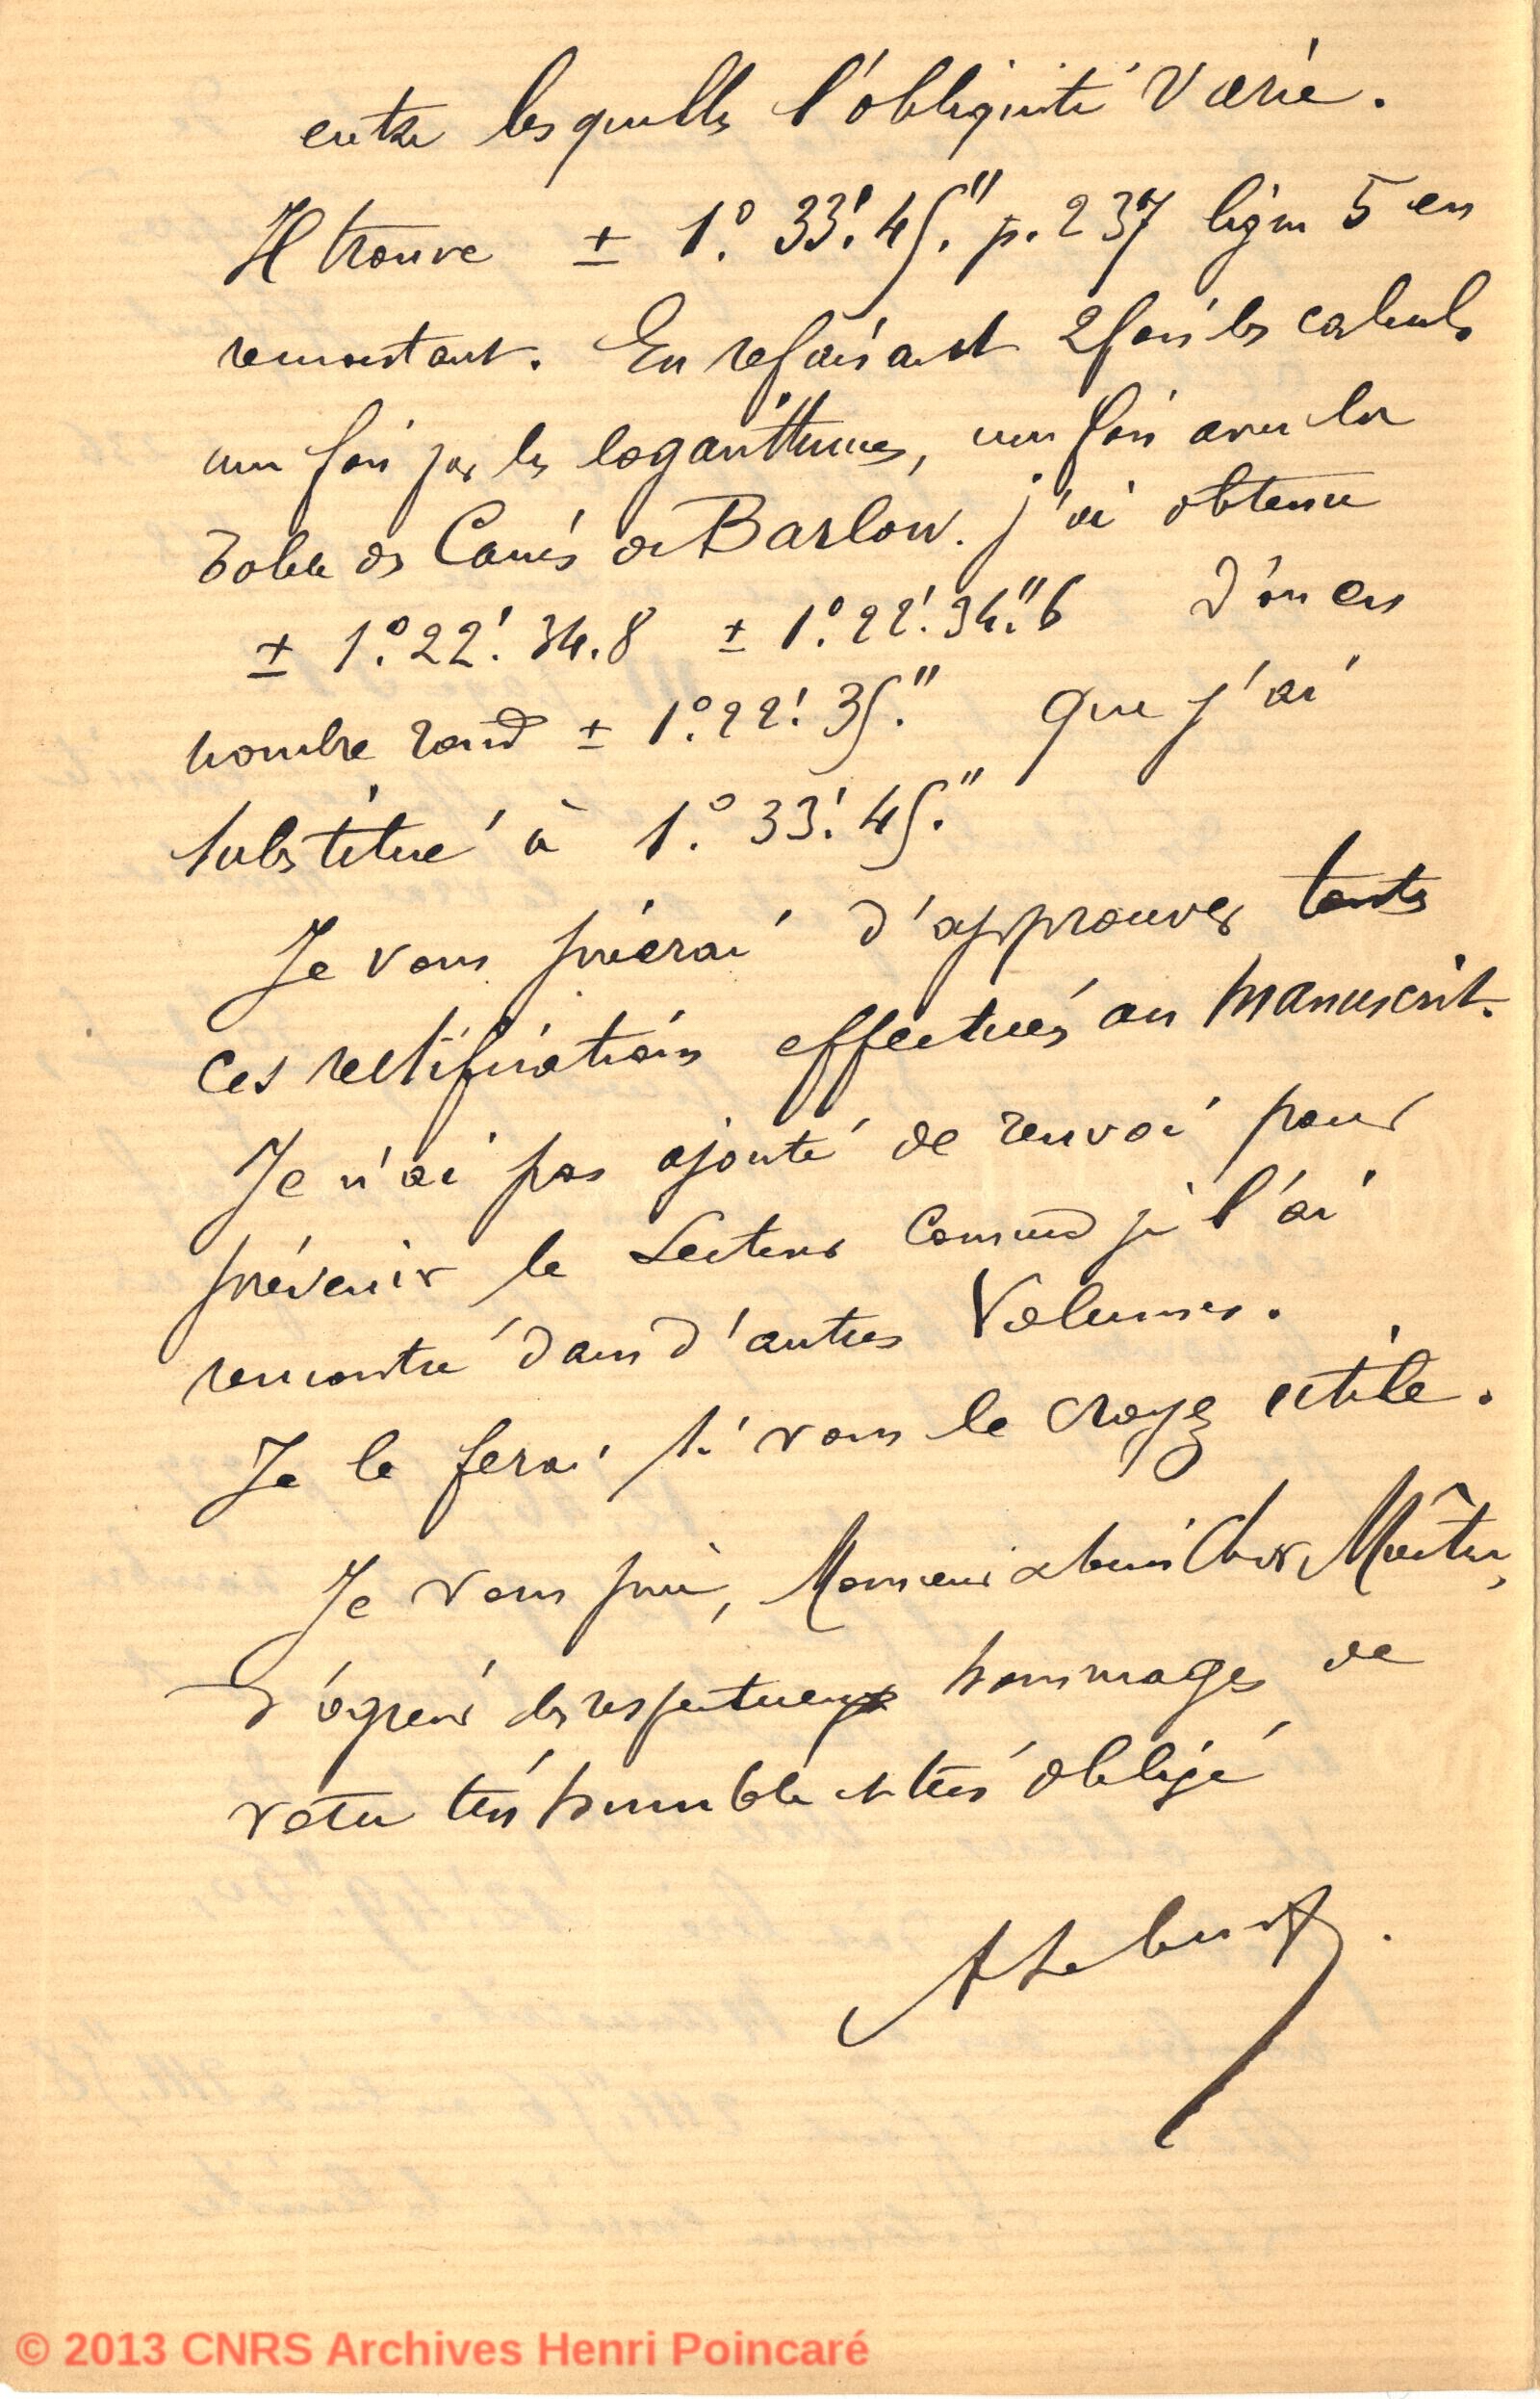 entre lesquelles l'obliquité varie.
Il trouve ± 1°. 33'. 45." p. 237 ligne 5 en
remontant. En refaisant 2 fois les calculs
une fois par les logarithmes, une fois avec la
Table des Carrés de Barlow. j'ai obtenu
± 1°. 22'. 34.8 ± 1°. 22'. 34."6 d'ou en
nombre rond ± 1°. 22'. 35." que j'ai
substitué à 1°. 33'. 45."
Je vous prierai d'approuver toutes
ces rectifications effectuées au manuscrit.
Je n'ai pas ajouté de renvoi pour
prévenir le Lecteur comme je l'ai
rencontré dans d'autres Volumes.
Je le ferai si vous le croyez utile.
Je vous prie, Monsieur et bien Cher Maître,
d'agréer les respectueux hommages de
votre très humble et très obligé
A Lebeuf.
© 2013 CNRS Archives Henri Poincaré